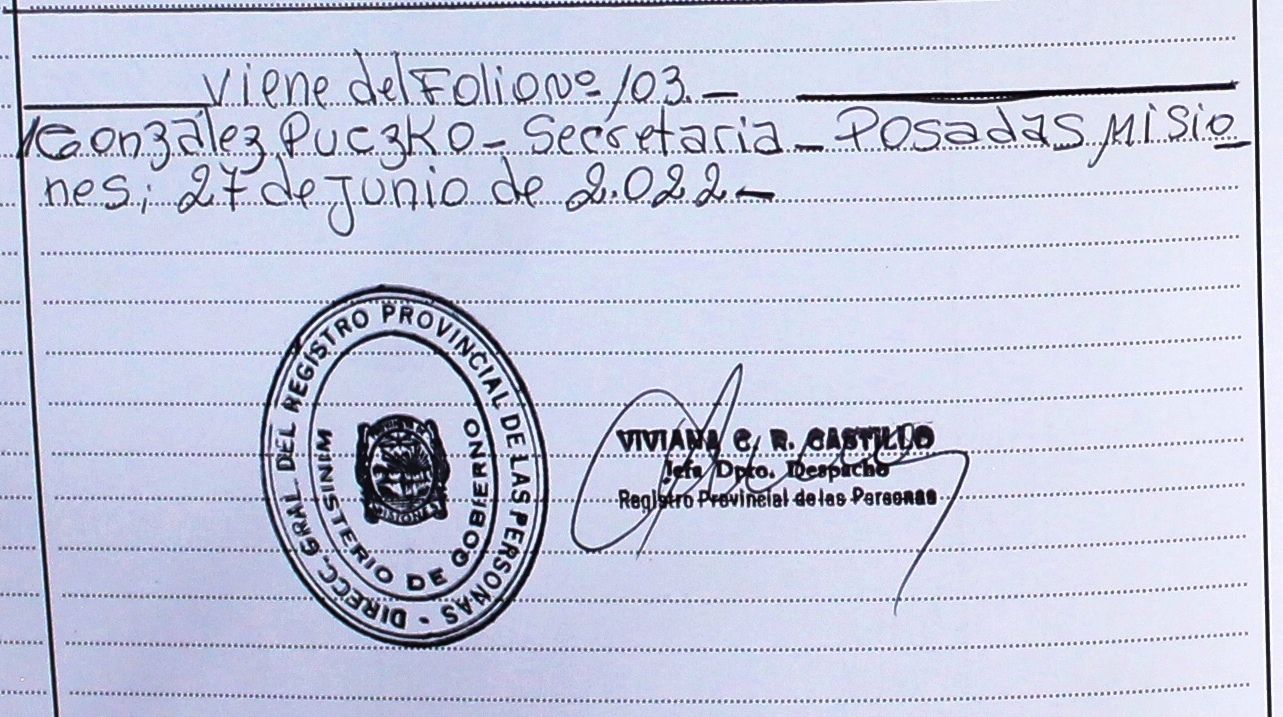 Viene del Folio Nº 103.-
González Puczko - Secretaria - Posadas, Misio
nes; 27 de Junio de 2.022-
DIRECC. GRAL. DEL REGISTRO PROVINCIAL DE LAS PERSONAS -
MINISTERIO DE GOBIERNO
MISIONES
VIVIANA C. R. CASTILLO
Jefa Dpto. Despacho
Registro Provincial de las Personas